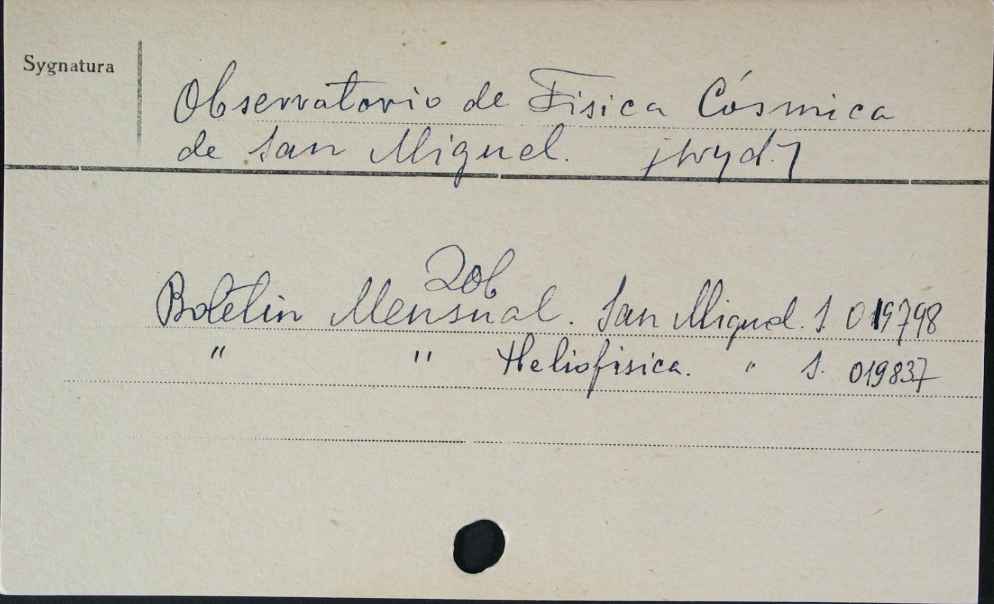 Sygnatura
Observatorio de Fisica Cósmica
de San Miguel. [wyd.]
Zob
Boletin Mensual. San Miguel. S 019798
" " Heliofisica. " S. 019837